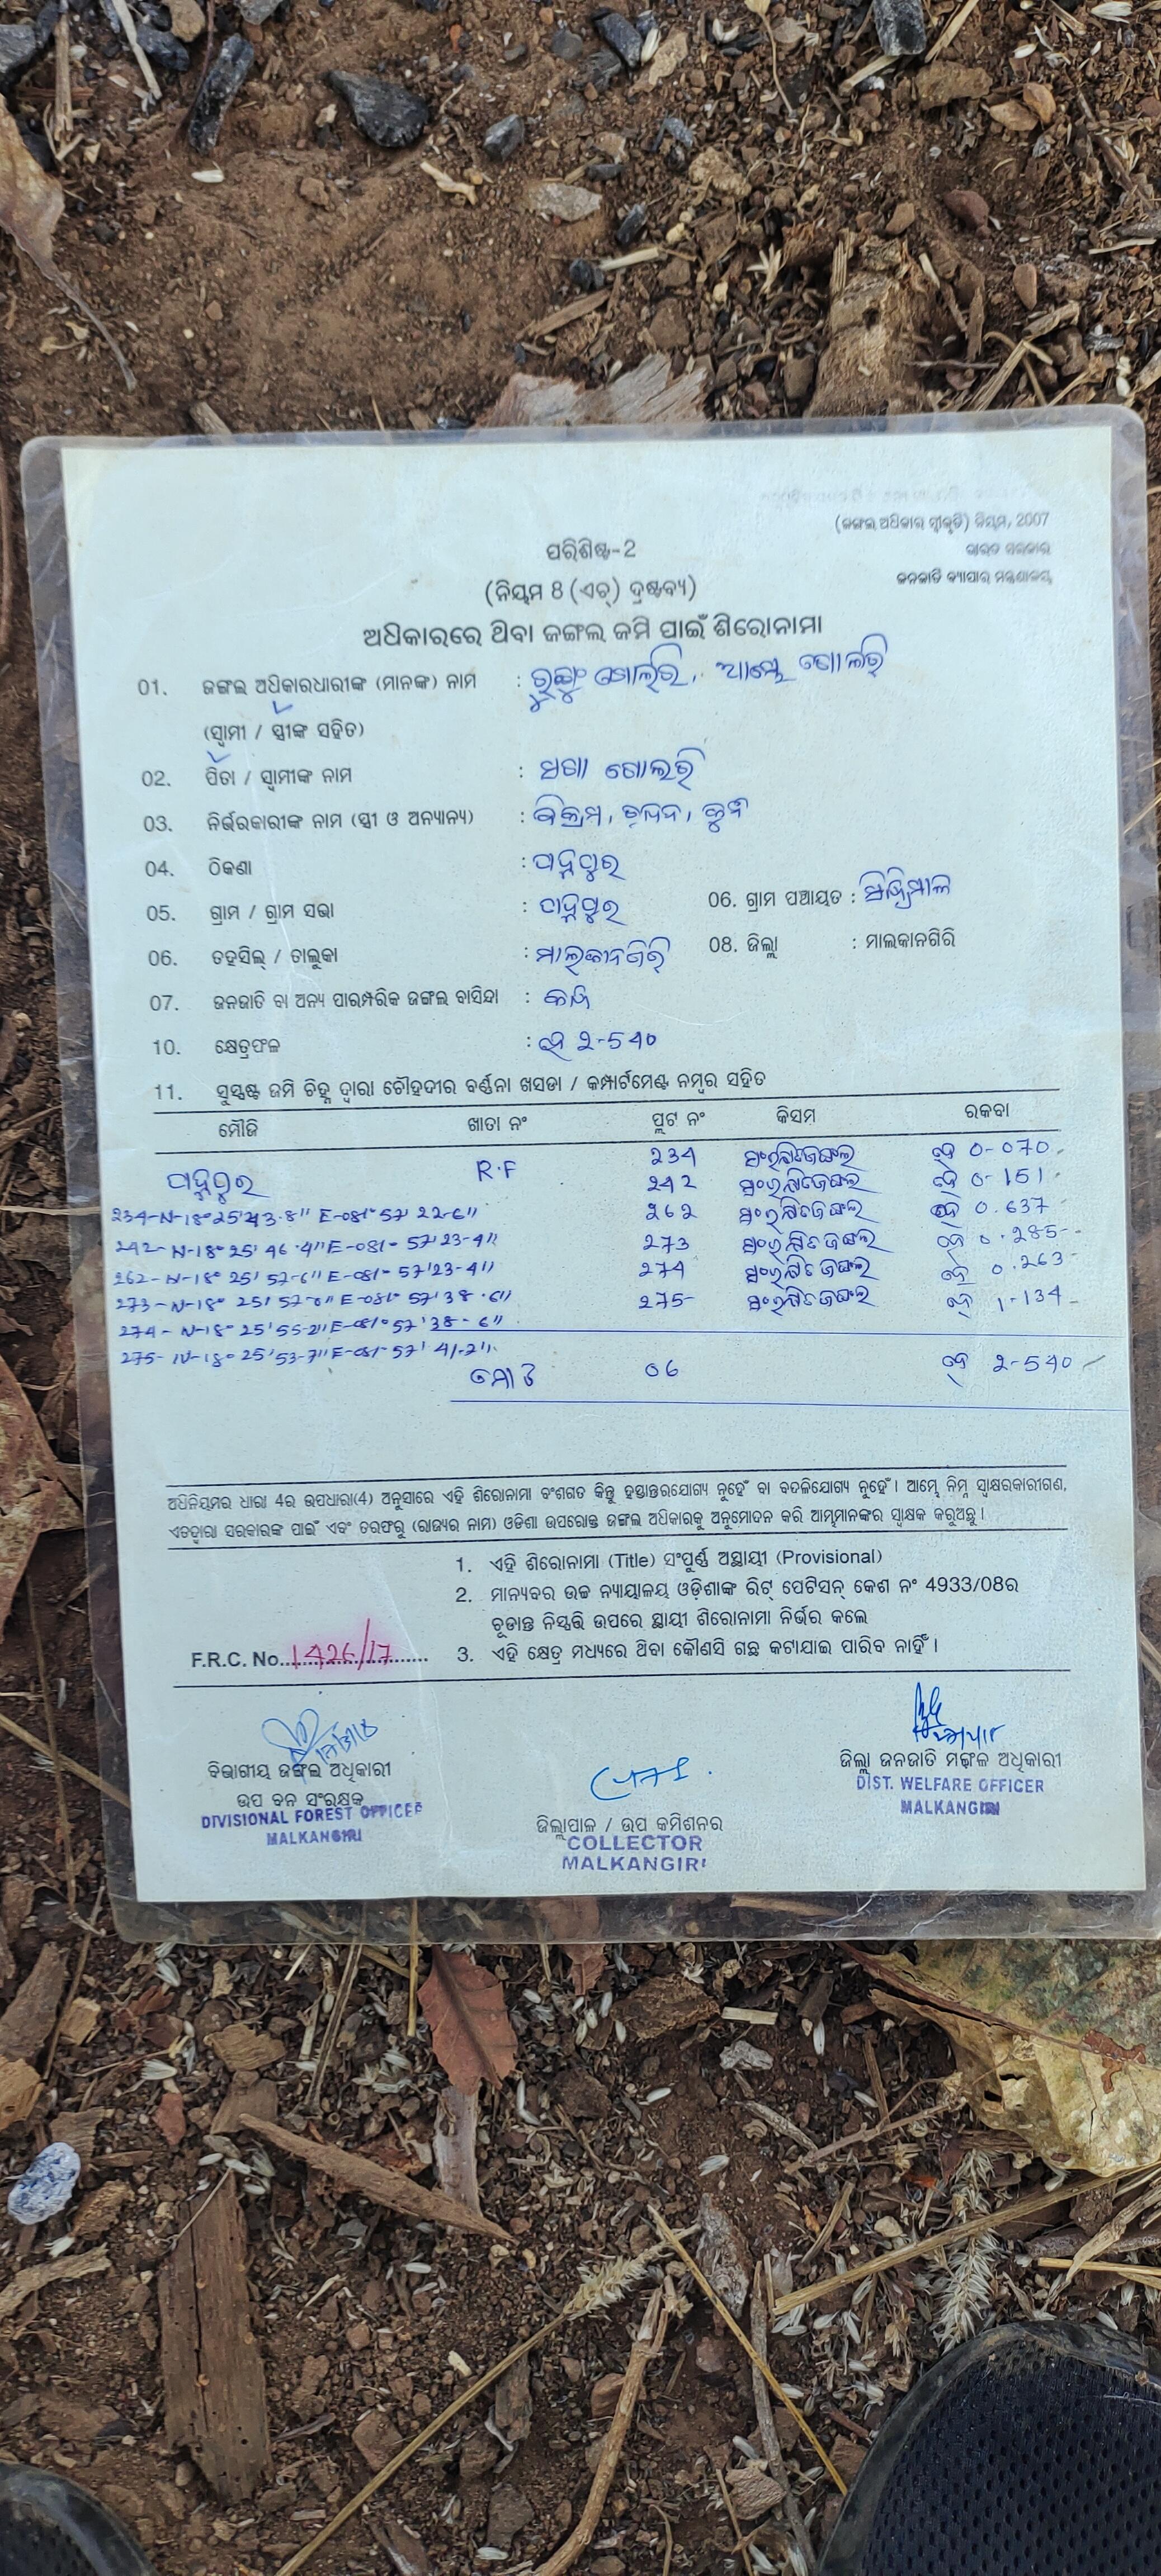 (ଜଙ୍ଗଲ ଅଧିକାର ସ୍ୱୀକୃତି) ନିୟମ, 2007
ଭାରତ ସରକାର
ଜନଜାତି ବ୍ୟାପାର ମନ୍ତ୍ରଣାଳୟ
ପରିଶିଷ୍ଟ-2
(ନିୟମ 8 (ଏଚ୍) ଦ୍ରଷ୍ଟବ୍ୟ)
ଅଧିକାରରେ ଥିବା ଜଙ୍ଗଲ ଜମି ପାଇଁ ଶିରୋନାମା
01. ଜଙ୍ଗଲ ଅଧିକାରଧାରୀଙ୍କ (ମାନଙ୍କ) ନାମ :
(ସ୍ୱାମୀ / ସ୍ତ୍ରୀଙ୍କ ସହିତ)
02. ପିତା / ସ୍ୱାମୀଙ୍କ ନାମ :
03. ନିର୍ଭରକାରୀଙ୍କ ନାମ (ସ୍ତ୍ରୀ ଓ ଅନ୍ୟାନ୍ୟ) : ବିକ୍ରମ, ଚନ୍ଦନ,
04. ଠିକଣା : ପଦ୍ମପୁର
05. ଗ୍ରାମ / ଗ୍ରାମ ସଭା : ପଦ୍ମପୁର 06. ଗ୍ରାମ ପଞ୍ଚାୟତ :
06. ତହସିଲ୍ / ତାଲୁକା : ମାଲକାନଗିରି 08. ଜିଲ୍ଲା : ମାଲକାନଗିରି
07. ଜନଜାତି ବା ଅନ୍ୟ ପାରମ୍ପରିକ ଜଙ୍ଗଲ ବାସିନ୍ଦା :
10. କ୍ଷେତ୍ରଫଳ : ହେ 2-540
11. ସୁସ୍ପଷ୍ଟ ଜମି ଚିହ୍ନ ଦ୍ୱାରା ଚୌହଦୀର ବର୍ଣ୍ଣନା ଖସଡା / କମ୍ପାର୍ଟମେଣ୍ଟ ନମ୍ବର ସହିତ
ମୌଜି ଖାତା ନଂ ପ୍ଲଟ ନଂ କିସମ ରକବା
ପଦ୍ମପୁର R.F 234 ସଂରକ୍ଷିତ ଜଙ୍ଗଲ ହେ 0-070
242 ସଂରକ୍ଷିତ ଜଙ୍ଗଲ ହେ 0-151
234-N-18° 25' 43.8" E-081° 57' 22-6" 262 ସଂରକ୍ଷିତ ଜଙ୍ଗଲ ହେ 0.637
242-N-18° 25' 46.4" E-081° 57' 23-4" 273 ସଂରକ୍ଷିତ ଜଙ୍ଗଲ ହେ 0.285
262-N-18° 25' 52-6" E-081° 57' 23-4" 274 ସଂରକ୍ଷିତ ଜଙ୍ଗଲ ହେ 0.263
273-N-18° 25' 52-0" E-081° 57' 38.6" 275 ସଂରକ୍ଷିତ ଜଙ୍ଗଲ ହେ 1-134
274-N-18° 25' 55-2" E-081° 57' 38-6"
275-N-18° 25' 53-7" E-081-57' 41-2"
ମୋଟ 06 ହେ 2-540
ଅଧିନିୟମର ଧାରା 4ର ଉପଧାରା(4) ଅନୁସାରେ ଏହି ଶିରୋନାମା ବଂଶଗତ କିନ୍ତୁ ହସ୍ତାନ୍ତରଯୋଗ୍ୟ ନୁହେଁ ବା ବଦଳିଯୋଗ୍ୟ ନୁହେଁ । ଆମ୍ଭେ ନିମ୍ନ ସ୍ୱାକ୍ଷରକାରୀଗଣ,
ଏତଦ୍ୱାରା ସରକାରଙ୍କ ପାଇଁ ଏବଂ ତରଫରୁ (ରାଜ୍ୟର ନାମ) ଓଡିଶା ଉପରୋକ୍ତ ଜଙ୍ଗଲ ଅଧିକାରକୁ ଅନୁମୋଦନ କରି ଆମ୍ଭମାନଙ୍କର ସ୍ୱାକ୍ଷକ କରୁଅଛୁ ।
1. ଏହି ଶିରୋନାମା (Title) ସଂପୁର୍ଣ୍ଣ ଅସ୍ଥାୟୀ (Provisional)
2. ମାନ୍ୟବର ଉଚ୍ଚ ନ୍ୟାୟାଳୟ ଓଡ଼ିଶାଙ୍କ ରିଟ୍ ପେଟିସନ୍ କେଶ ନଂ 4933/08ର
ଚୂଡାନ୍ତ ନିସ୍ପତ୍ତି ଉପରେ ସ୍ଥାୟୀ ଶିରୋନାମା ନିର୍ଭର କଲେ
F.R.C. No. 1426/17 3. ଏହି କ୍ଷେତ୍ର ମଧ୍ୟରେ ଥିବା କୌଣସି ଗଛ କଟାଯାଇ ପାରିବ ନାହିଁ ।
ବିଭାଗୀୟ ଜଙ୍ଗଲ ଅଧିକାରୀ
ଉପ ବନ ସଂରକ୍ଷକ
DIVISIONAL FOREST OFFICER
MALKANGIRI
ଜିଲ୍ଲାପାଳ / ଉପ କମିଶନର
COLLECTOR
MALKANGIRI
ଜିଲ୍ଲା ଜନଜାତି ମଙ୍ଗଳ ଅଧିକାରୀ
DIST. WELFARE OFFICER
MALKANGIRI